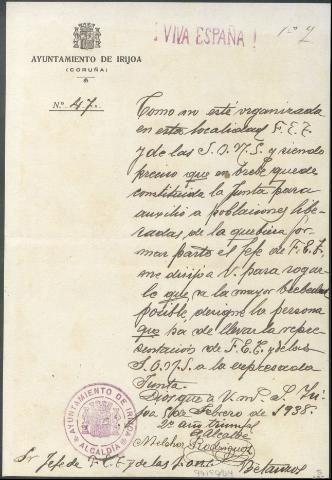 ¡VIVA ESPAÑA!
AYUNTAMIENTO DE IRIJOA
(CORUÑA)
N.º 47.
Como no esté organizada
en esta localidad F.E.T.
y de las J.O.N.S. y siendo
preciso que en breve quede
constituida la Junta para
auxilio a poblaciones libe-
radas, de la que
formar parte el Jefe de F.E.T.,
me dirijo a V. para rogar-
le que, a la mayor brebedad
posible, designe la persona
que ha de llevar la repre-
sentación de F.E.T. y de las
J.O.N.S. a la expresada
Junta.
Dios gue a V. m. a. Iri-
joa 5 de Febrero de 1938.
2º año triunfal
El Alcalde
Melchor Rodriguez
AYUNTAMIENTO DE IRIJOA
ALCALDÍA
Sr Jefe de F.E.T. y de las J.ons
Betanzos